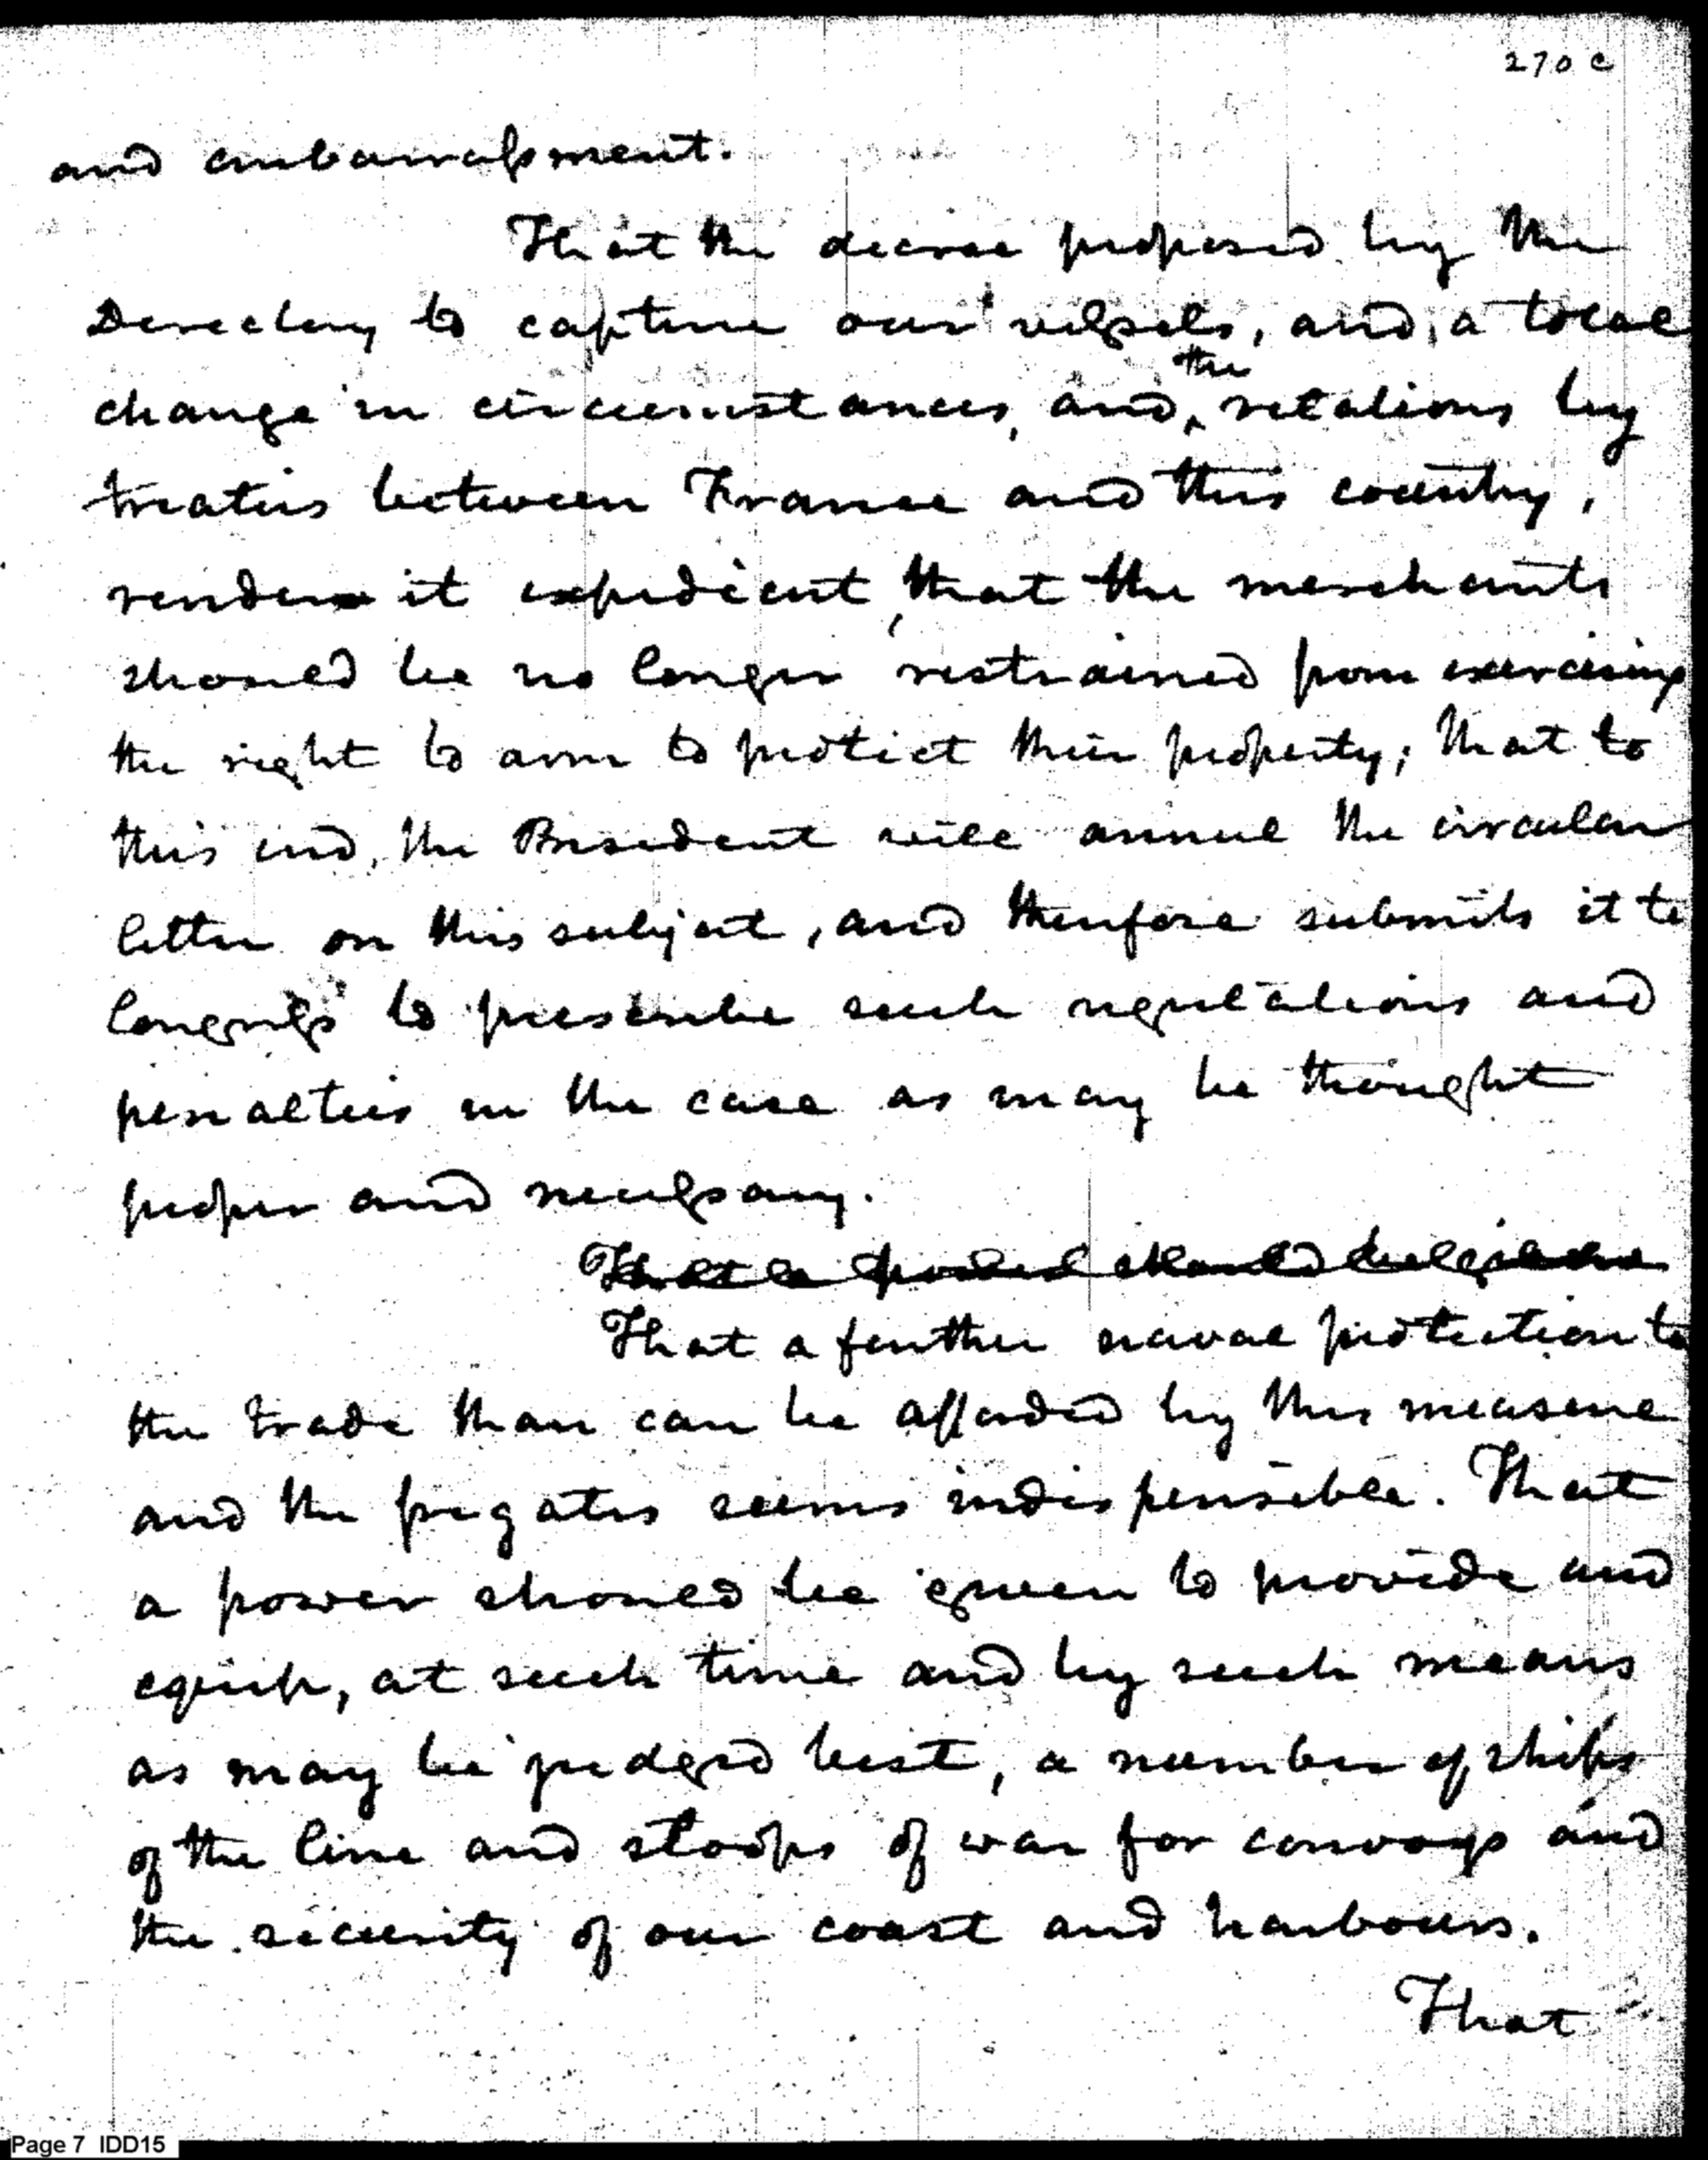 270 c
and embarrassment.
That the decree proposed by the
Directory to capture our vessels, and, a total
change in circumstances, and the relations by
treaties between France and this country,
render it expedient, that the merchants
should be no longer restrained from exercising
the right to arm to protect their property; that to
this end, the President will annul the circular
letter on this subject, and therefore submits it to
Congress to prescribe such regulations and
penalties in the case as may be thought
proper and necessary.
That a power should be given
That a further naval protection to
the trade than can be afforded by this measure
and the frigates seems indispensible. That
a power should be given to provide and
equip, at such time and by such means
as may be judged best, a number of ships
of the line and sloops of war for convoys and
the security of our coast and harbours.
That
Page 7 IDD15